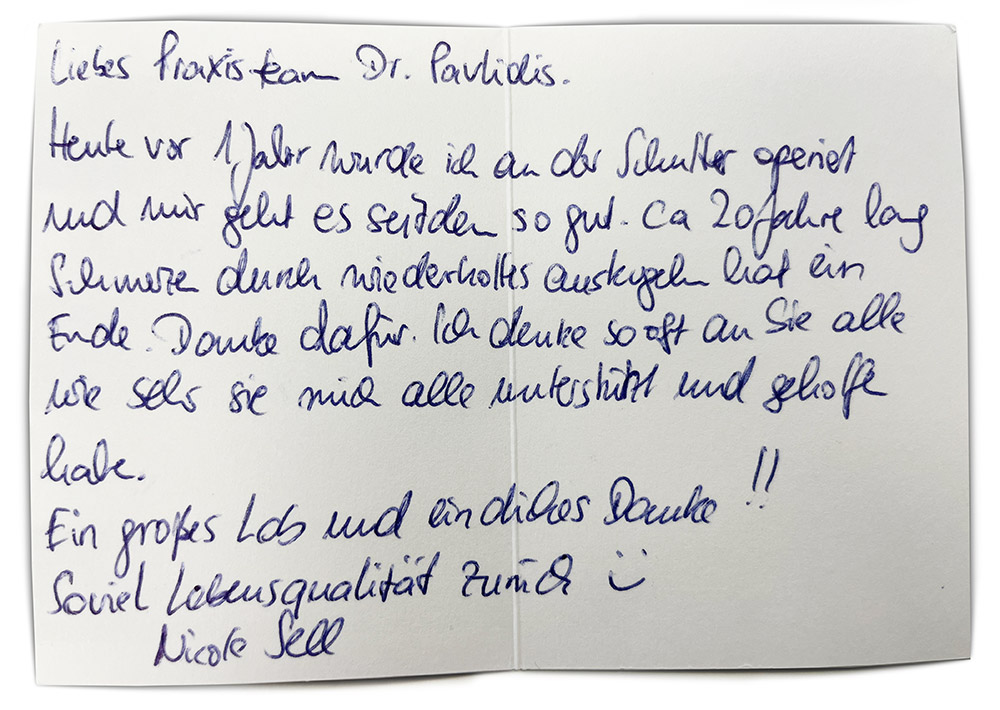 Liebes Praxisteam Dr. Pavlidis.
Heute vor 1 Jahr wurde ich an der Schulter operiert
und mir geht es seitdem so gut. Ca 20 Jahre lang
Schmerzen durch wiederholtes auskugeln hat ein
Ende. Danke dafür. Ich denke so oft an Sie alle
wie sehr sie mich alle unterstützt und geholfen
habe.
Ein großes Lob und ein dickes Danke !!
Soviel Lebensqualität zurück :)
Nicole Sell